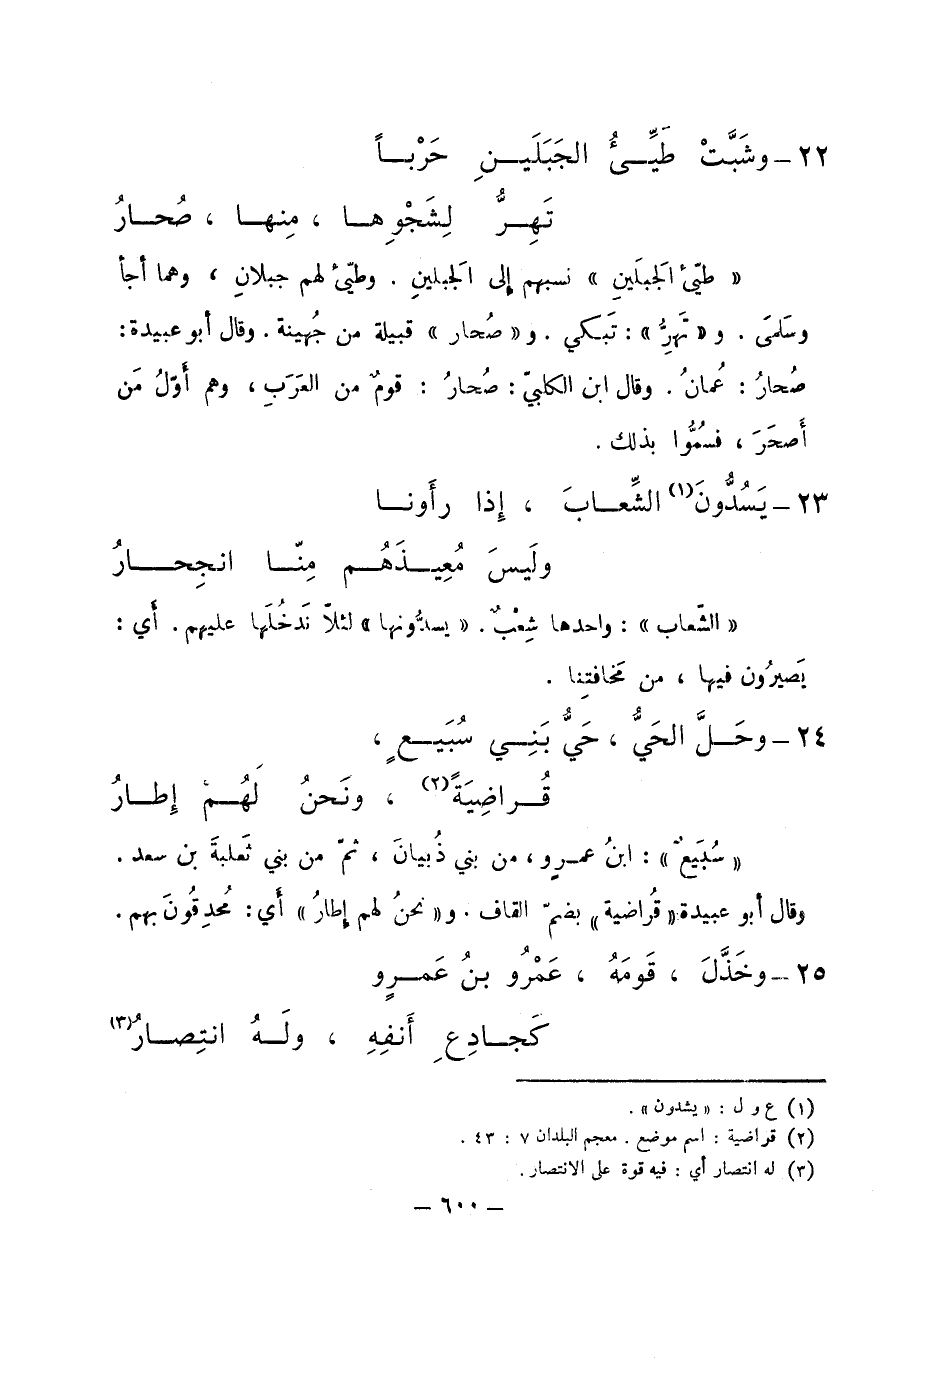 ٢٢ – وشَبَّتْ طَيِّئُ الجَبَلَينِ حَرْباً
تَهِرُّ لِشَجْوِها ، مِنها ، صُحارُ
« طيّئُ الجبلَينِ » نسبهم إلى الجبلينِ . وطيّئ لهم جبلانِ ، وهما أجأ
وسَلمَى . و « تَهِرُّ » : تَبكي . و « صُحار » قبيلة من جُهينة . وقال أبو عبيدة :
صُحارُ : عُمانُ . وقال ابن الكلبيّ : صُحارُ : قومٌ من العَرَبِ ، وهم أوّلُ مَن
أصحَرَ ، فسُمُّوا بذلك .
٢٣ – يَسُدُّونَ(١) الشِّعابَ ، إذا رأَونا
ولَيسَ مُعِيذَهُم مِنّا انجِحارُ
« الشّعاب » : واحدها شِعْبٌ . « يسدُّونها » لئلاّ نَدخُلَها عليهم . أي :
يَصيرُون فيها ، من مَخافتِنا .
٢٤ – وحَلَّ الحَيُّ ، حَيُّ بَنِي سُبَيعٍ ،
قُراضِيَةً(٢) ، ونَحنُ لَهُمْ إطارُ
« سُبَيعٌ » : ابنُ عمرٍو ، من بني ذُبيانَ ، ثمّ من بني ثَعلبةَ بن سعد .
وقال أبو عبيدة: « قُراضية » بضمّ القاف . و« نحنُ لهم إطارُ » أي : مُحدِقُونَ بهم .
٢٥ – وخَذَّلَ ، قَومَهُ ، عَمْرُو بنُ عَمرٍو
كَجادِعِ أَنفِهِ ، ولَهُ انتِصارُ(٣)
(١) ع و ل : « يشدون » .
(٢) قراضية : اسم موضع . معجم البلدان ٧ : ٤٣ .
(٣) له انتصار أي : فيه قوة على الانتصار .
– ٦٠٠ –